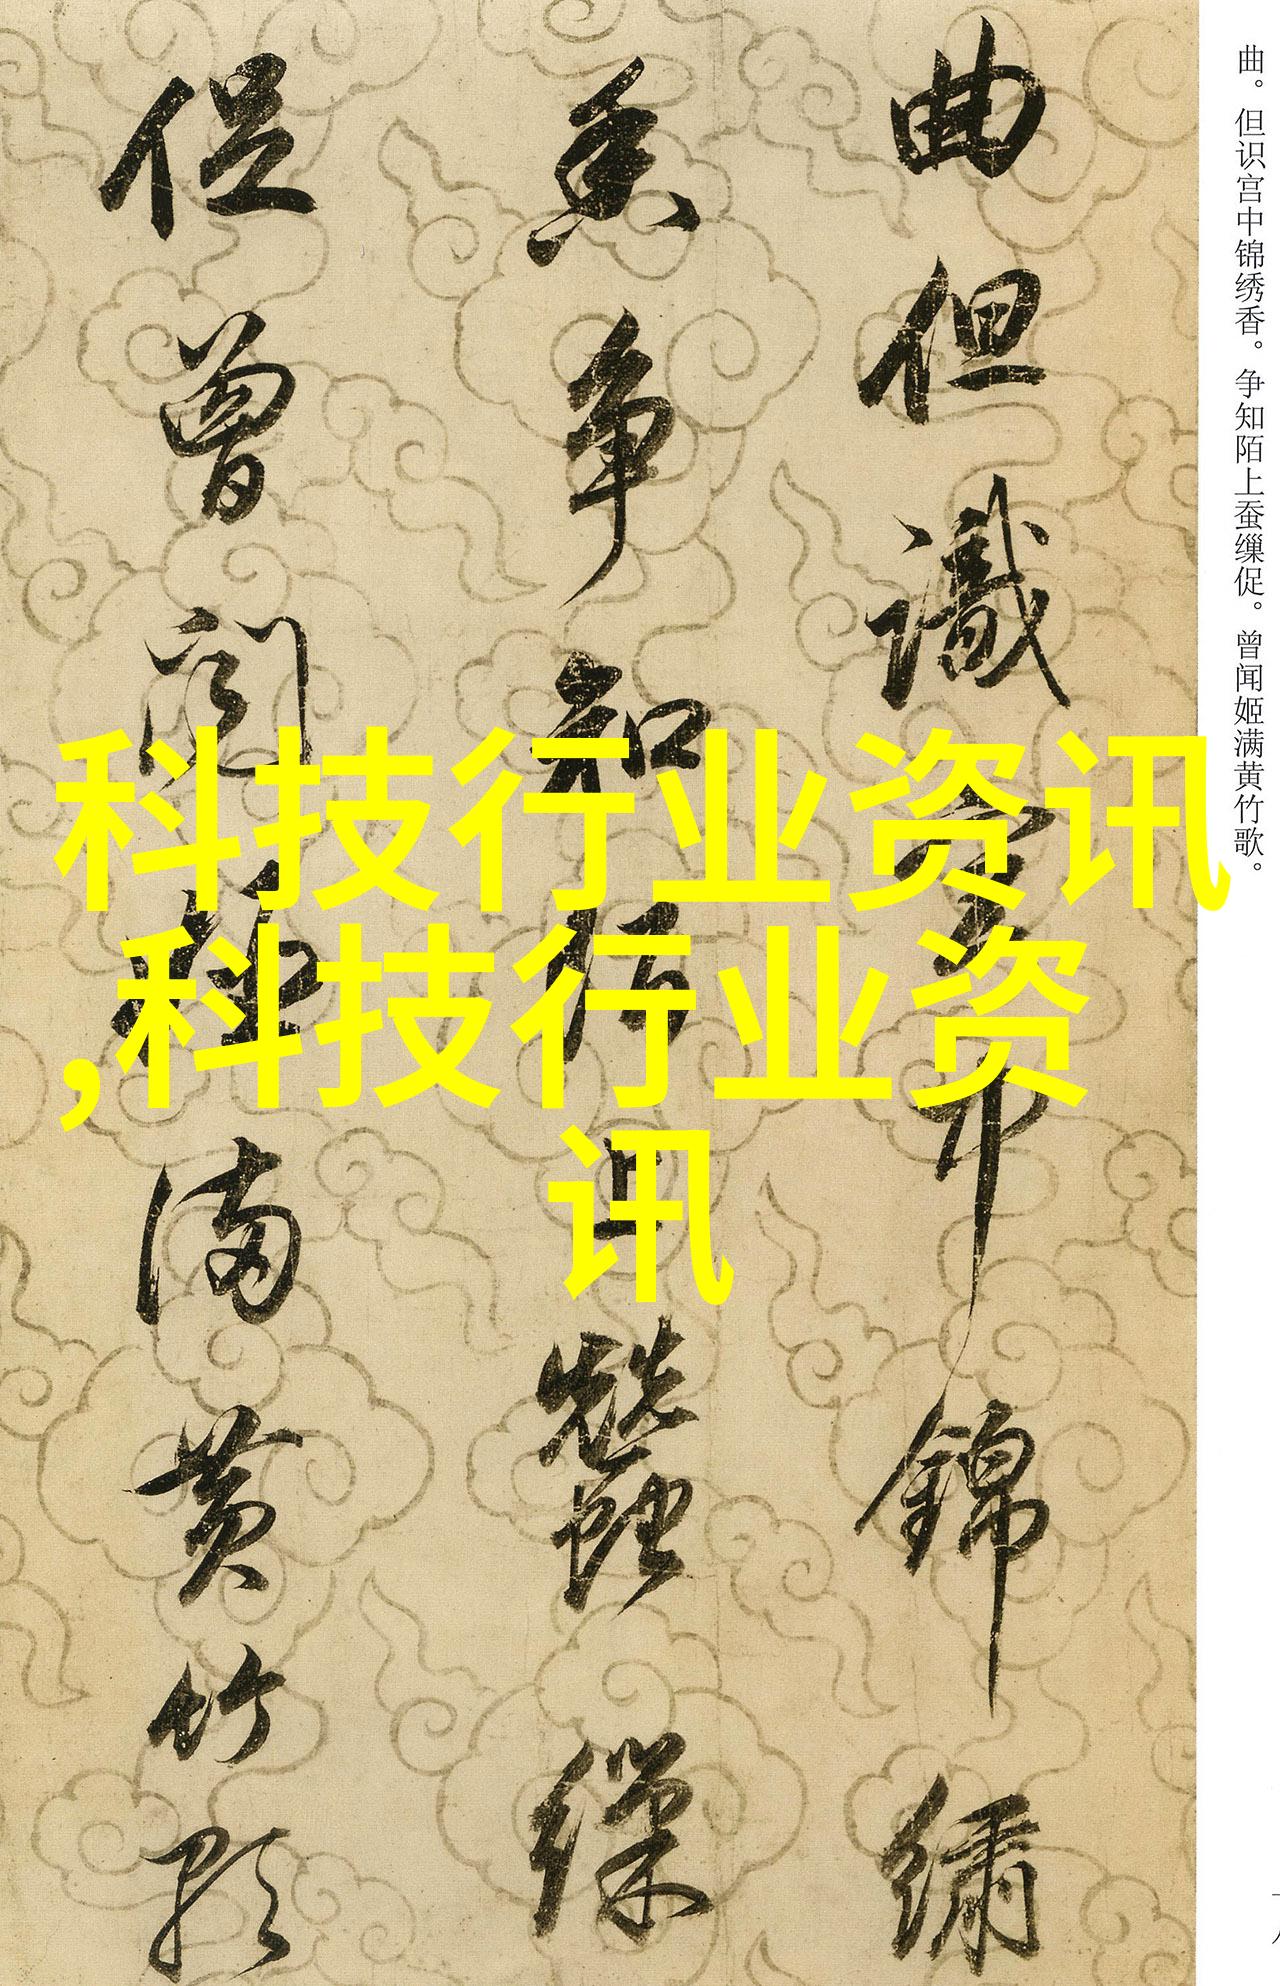 曲但識宮中錦繡
香争知陌上蠶繅
促曾聞姬滿黃竹歌
曲。但识宫中锦绣香。争知陌上蚕缫促。曾闻姬满黄竹歌。
科技行业资讯
,科技行业资
讯